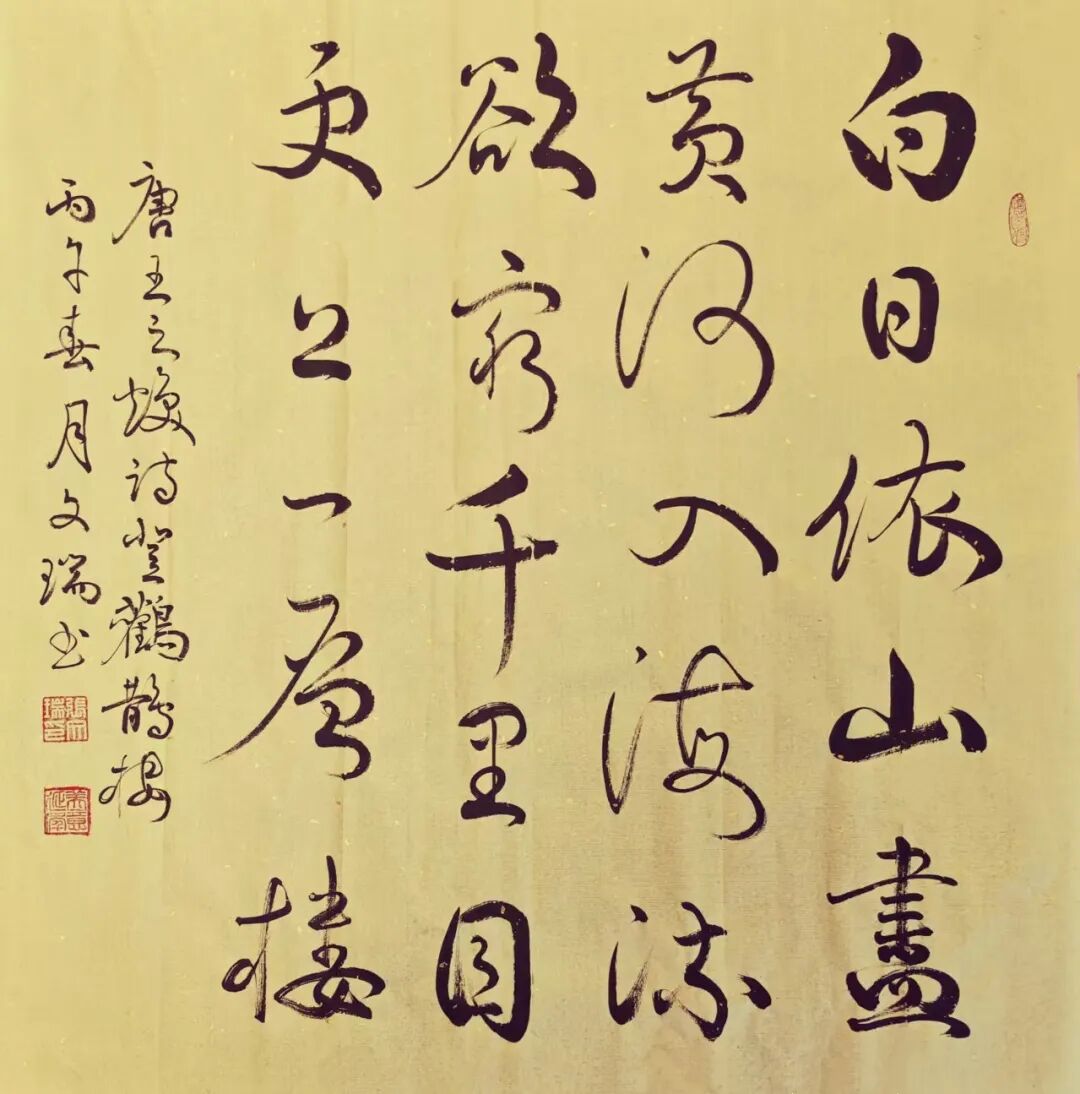 白日依山盡
黄河入海流
欲窮千里目
更上一層樓
唐王之焕詩登鸛鵲楼
丙午春月文瑞书